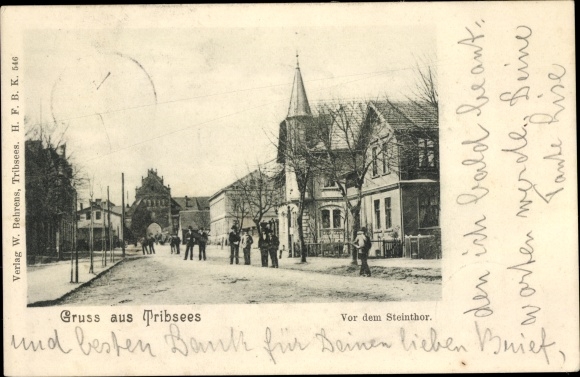 Verlag W. Behrens, Tribsees. H. F. B. K. 546
Gruss aus Tribsees
Vor dem Steinthor.
und besten Dank für Deinen lieben Brief,
den ich bald beant-
worten werde. Deine
Tante Lise